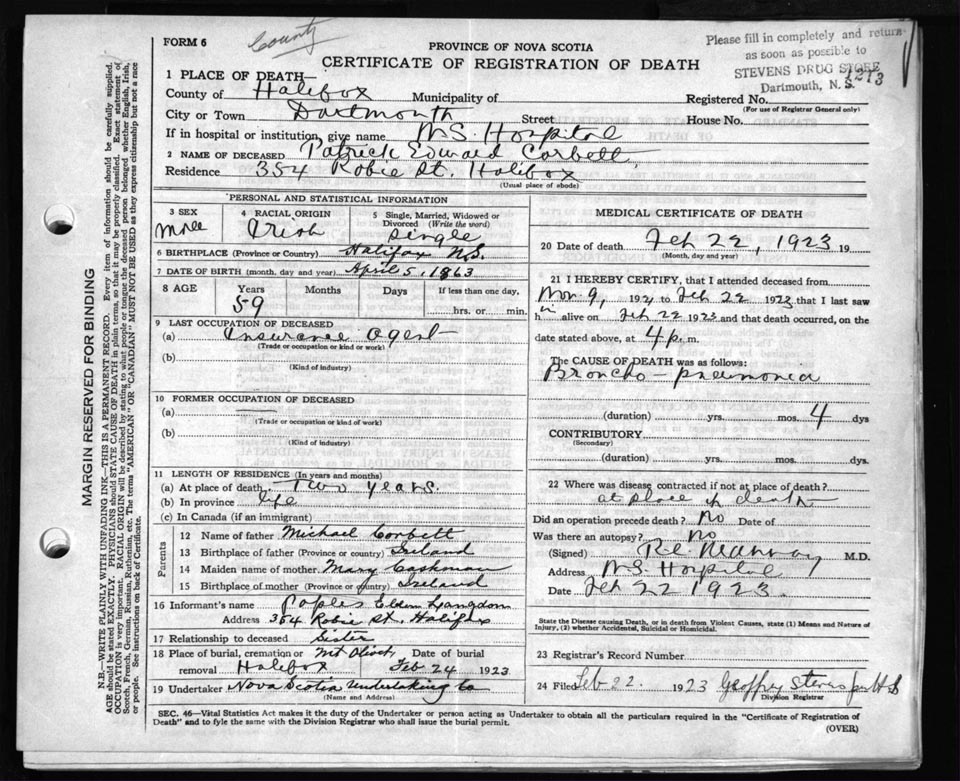 County
FORM 6
PROVINCE OF NOVA SCOTIA
CERTIFICATE OF REGISTRATION OF DEATH
Please fill in completely and return
as soon as possible to
STEVENS DRUG STORE
Dartmouth, N. S.
1273
MARGIN RESERVED FOR BINDING
N.B.—WRITE PLAINLY WITH UNFADING INK—THIS IS A PERMANENT RECORD. Every item of information should be carefully supplied.
AGE should be stated EXACTLY. PHYSICIANS should STATE CAUSE OF DEATH in plain terms, so that it may be properly classified. Exact statement of
OCCUPATION is very important. RACIAL ORIGIN will be described by stating to what people or tongue the deceased person belonged whether English, Irish,
Scotch, French, German, Russian, Ruthenian, etc. The terms "AMERICAN" OR "CANADIAN" MUST NOT BE USED as they express citizenship but not a race
or people. See instructions on back of Certificate.
1 PLACE OF DEATH—
County of Halifax Municipality of Registered No.
(For use of Registrar General only)
City or Town Dartmouth Street House No.
If in hospital or institution, give name N.S. Hospital
2 NAME OF DECEASED Patrick Edward Corbett
Residence 354 Robie St. Halifax
(Usual place of abode)
PERSONAL AND STATISTICAL INFORMATION
3 SEX Male
4 RACIAL ORIGIN Irish
5 Single, Married, Widowed or Divorced (Write the word) Single
6 BIRTHPLACE (Province or Country) Halifax N.S.
7 DATE OF BIRTH (month, day and year) April 5, 1863
8 AGE Years 59 Months Days If less than one day, hrs. or min.
9 LAST OCCUPATION OF DECEASED
(a) Insurance Agent
(Trade or occupation or kind or work)
(b)
(Kind of industry)
10 FORMER OCCUPATION OF DECEASED
(a) —
(Trade or occupation or kind of work)
(b)
(Kind of industry)
11 LENGTH OF RESIDENCE (In years and months)
(a) At place of death Two years.
(b) In province life
(c) In Canada (if an immigrant)
Parents
12 Name of father Michael Corbett
13 Birthplace of father (Province or country) Ireland
14 Maiden name of mother Mary Cashman
15 Birthplace of mother (Province or country) Ireland
16 Informant's name Langdon
Address 354 Robie St. Halifax
17 Relationship to deceased Sister
18 Place of burial, cremation or removal Mt Olivet Halifax Date of burial Feb 24 1923
19 Undertaker Nova Scotia Undertaking Co
(Name and Address)
MEDICAL CERTIFICATE OF DEATH
20 Date of death Feb 22, 1923 19
(Month, day and year)
21 I HEREBY CERTIFY, that I attended deceased from
Nov. 9, 1921 to Feb 22 1923 that I last saw
him alive on Feb 22 1923 and that death occurred, on the
date stated above, at 4 p. m.
The CAUSE OF DEATH was as follows:
Broncho-pneumonia
(duration) yrs. mos. 4 dys
CONTRIBUTORY
(Secondary)
(duration) yrs. mos. dys.
22 Where was disease contracted if not at place of death?
at place of death
Did an operation precede death? No Date of
Was there an autopsy? No
(Signed) M.D.
Address N.S. Hospital
Date Feb 22 1923.
State the Disease causing Death, or in death from Violent Causes, state (1) Means and Nature of
Injury, (2) whether Accidental, Suicidal or Homicidal.
23 Registrar's Record Number
24 Filed Feb 22. 1923 Geoffry Stevens per H S
Division Registrar
SEC. 46—Vital Statistics Act makes it the duty of the Undertaker or person acting as Undertaker to obtain all the particulars required in the "Certificate of Registration of
Death" and to fyle the same with the Division Registrar who shall issue the burial permit.
(OVER)